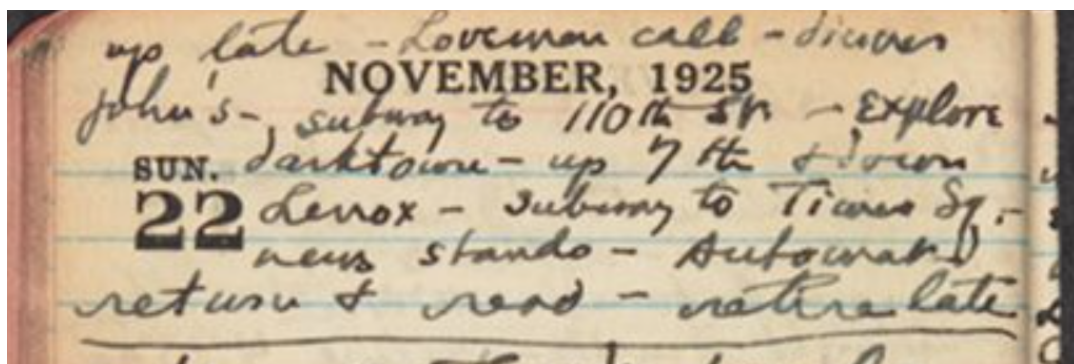 up late – Loveman call – dinner
NOVEMBER, 1925
John's – subway to 110th St. – Explore
SUN. darktown – up 7th & down
22 Lenox – subway to Times Sq. –
news stands – Automat –
return & read – retire late